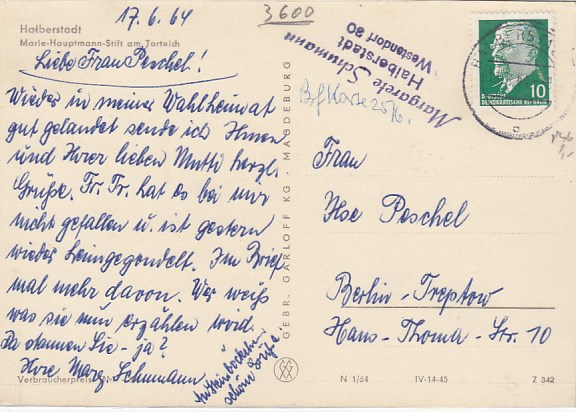 17.6.64
3600
Halberstadt
Marie-Hauptmann-Stift am Torteich
Liebe Frau Peschel!
Wieder in meiner Wahlheimat
gut gelandet sende ich Ihnen
und Ihrer lieben Mutti herzl.
Grüße. Fr. Tr. hat es bei mir
nicht gefallen u. ist gestern
wieder heimgegondelt. Im Brief
mal mehr davon. Wer weiß
was sie nun erzählen wird.
Da staunen Sie - ja?
Ihre Marg. Schumann
schöne Grüße
Verbraucherpreis
GEBR. GARLOFF KG · MAGDEBURG
Margarete Schumann
Halberstadt
Westendorf 80
10
DEUTSCHE
DEMOKRATISCHE REPUBLIK
Frau
Ilse Peschel
Berlin-Treptow
Hans-Thoma-Str. 10
N 1/64 IV-14-45 Z 342